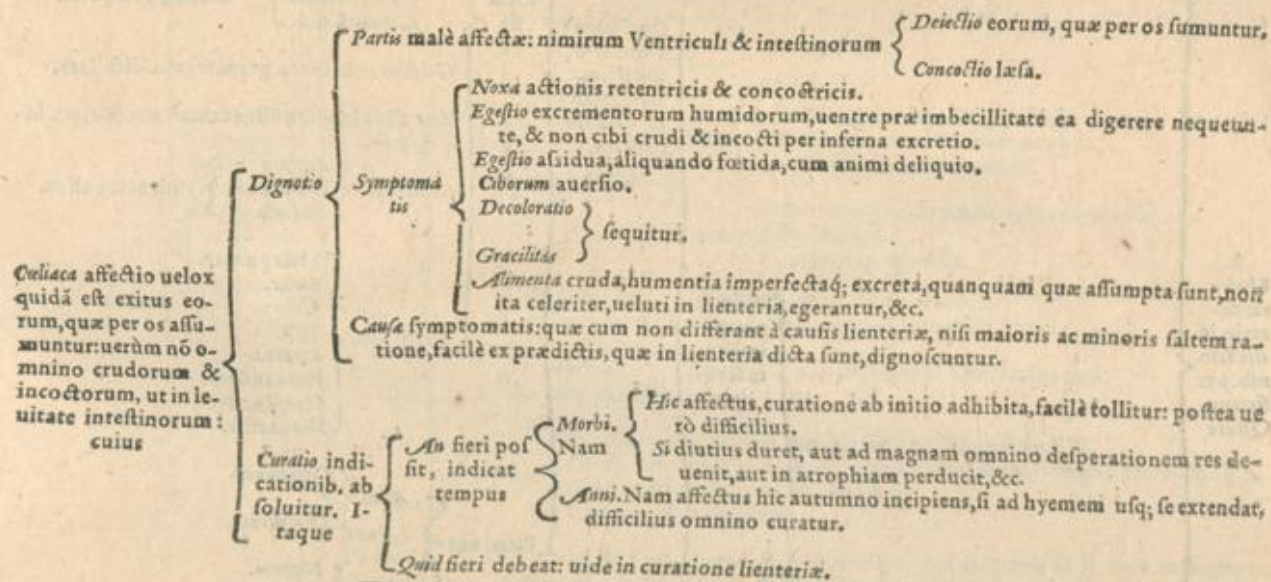 Cœliaca affectio uelox
quidā est exitus eo-
rum, quæ per os assu-
muntur: uerùm nō o-
mnino crudorum &
incoctorum, ut in le-
uitate intestinorum:
cuius
Dignotio
Partis malè affectæ: nimirum Ventriculi & intestinorum
Deiectio eorum, quæ per os sumuntur.
Concoctio læsa.
Symptoma
tis
Noxa actionis retentricis & concoctricis.
Egestio excrementorum humidorum, uentre præ imbecillitate ea digerere nequeun-
te, & non cibi crudi & incocti per inferna excretio.
Egestio assidua, aliquando fœtida, cum animi deliquio.
Ciborum auersio.
Decoloratio
Gracilitás
sequitur.
Alimenta cruda, humentia imperfectaq; excreta, quanquam quæ assumpta sunt, non
ita celeriter, ueluti in lienteria, egerantur, &c.
Causæ symptomatis: quæ cum non differant à causis lienteriæ, nisi maioris ac minoris saltem ra-
tione, facilè ex prædictis, quæ in lienteria dicta sunt, dignoscuntur.
Curatio indi-
cationib. ab
soluitur. I-
taque
An fieri pos
sit, indicat
tempus
Morbi.
Nam
Hic affectus, curatione ab initio adhibita, facilè tollitur: postea ue
rò difficilius.
Si diutius duret, aut ad magnam omnino desperationem res de-
uenit, aut in atrophiam perducit, &c.
Anni. Nam affectus hic autumno incipiens, si ad hyemem usq; se extendat,
difficilius omnino curatur.
Quid fieri debeat: uide in curatione lienteriæ.